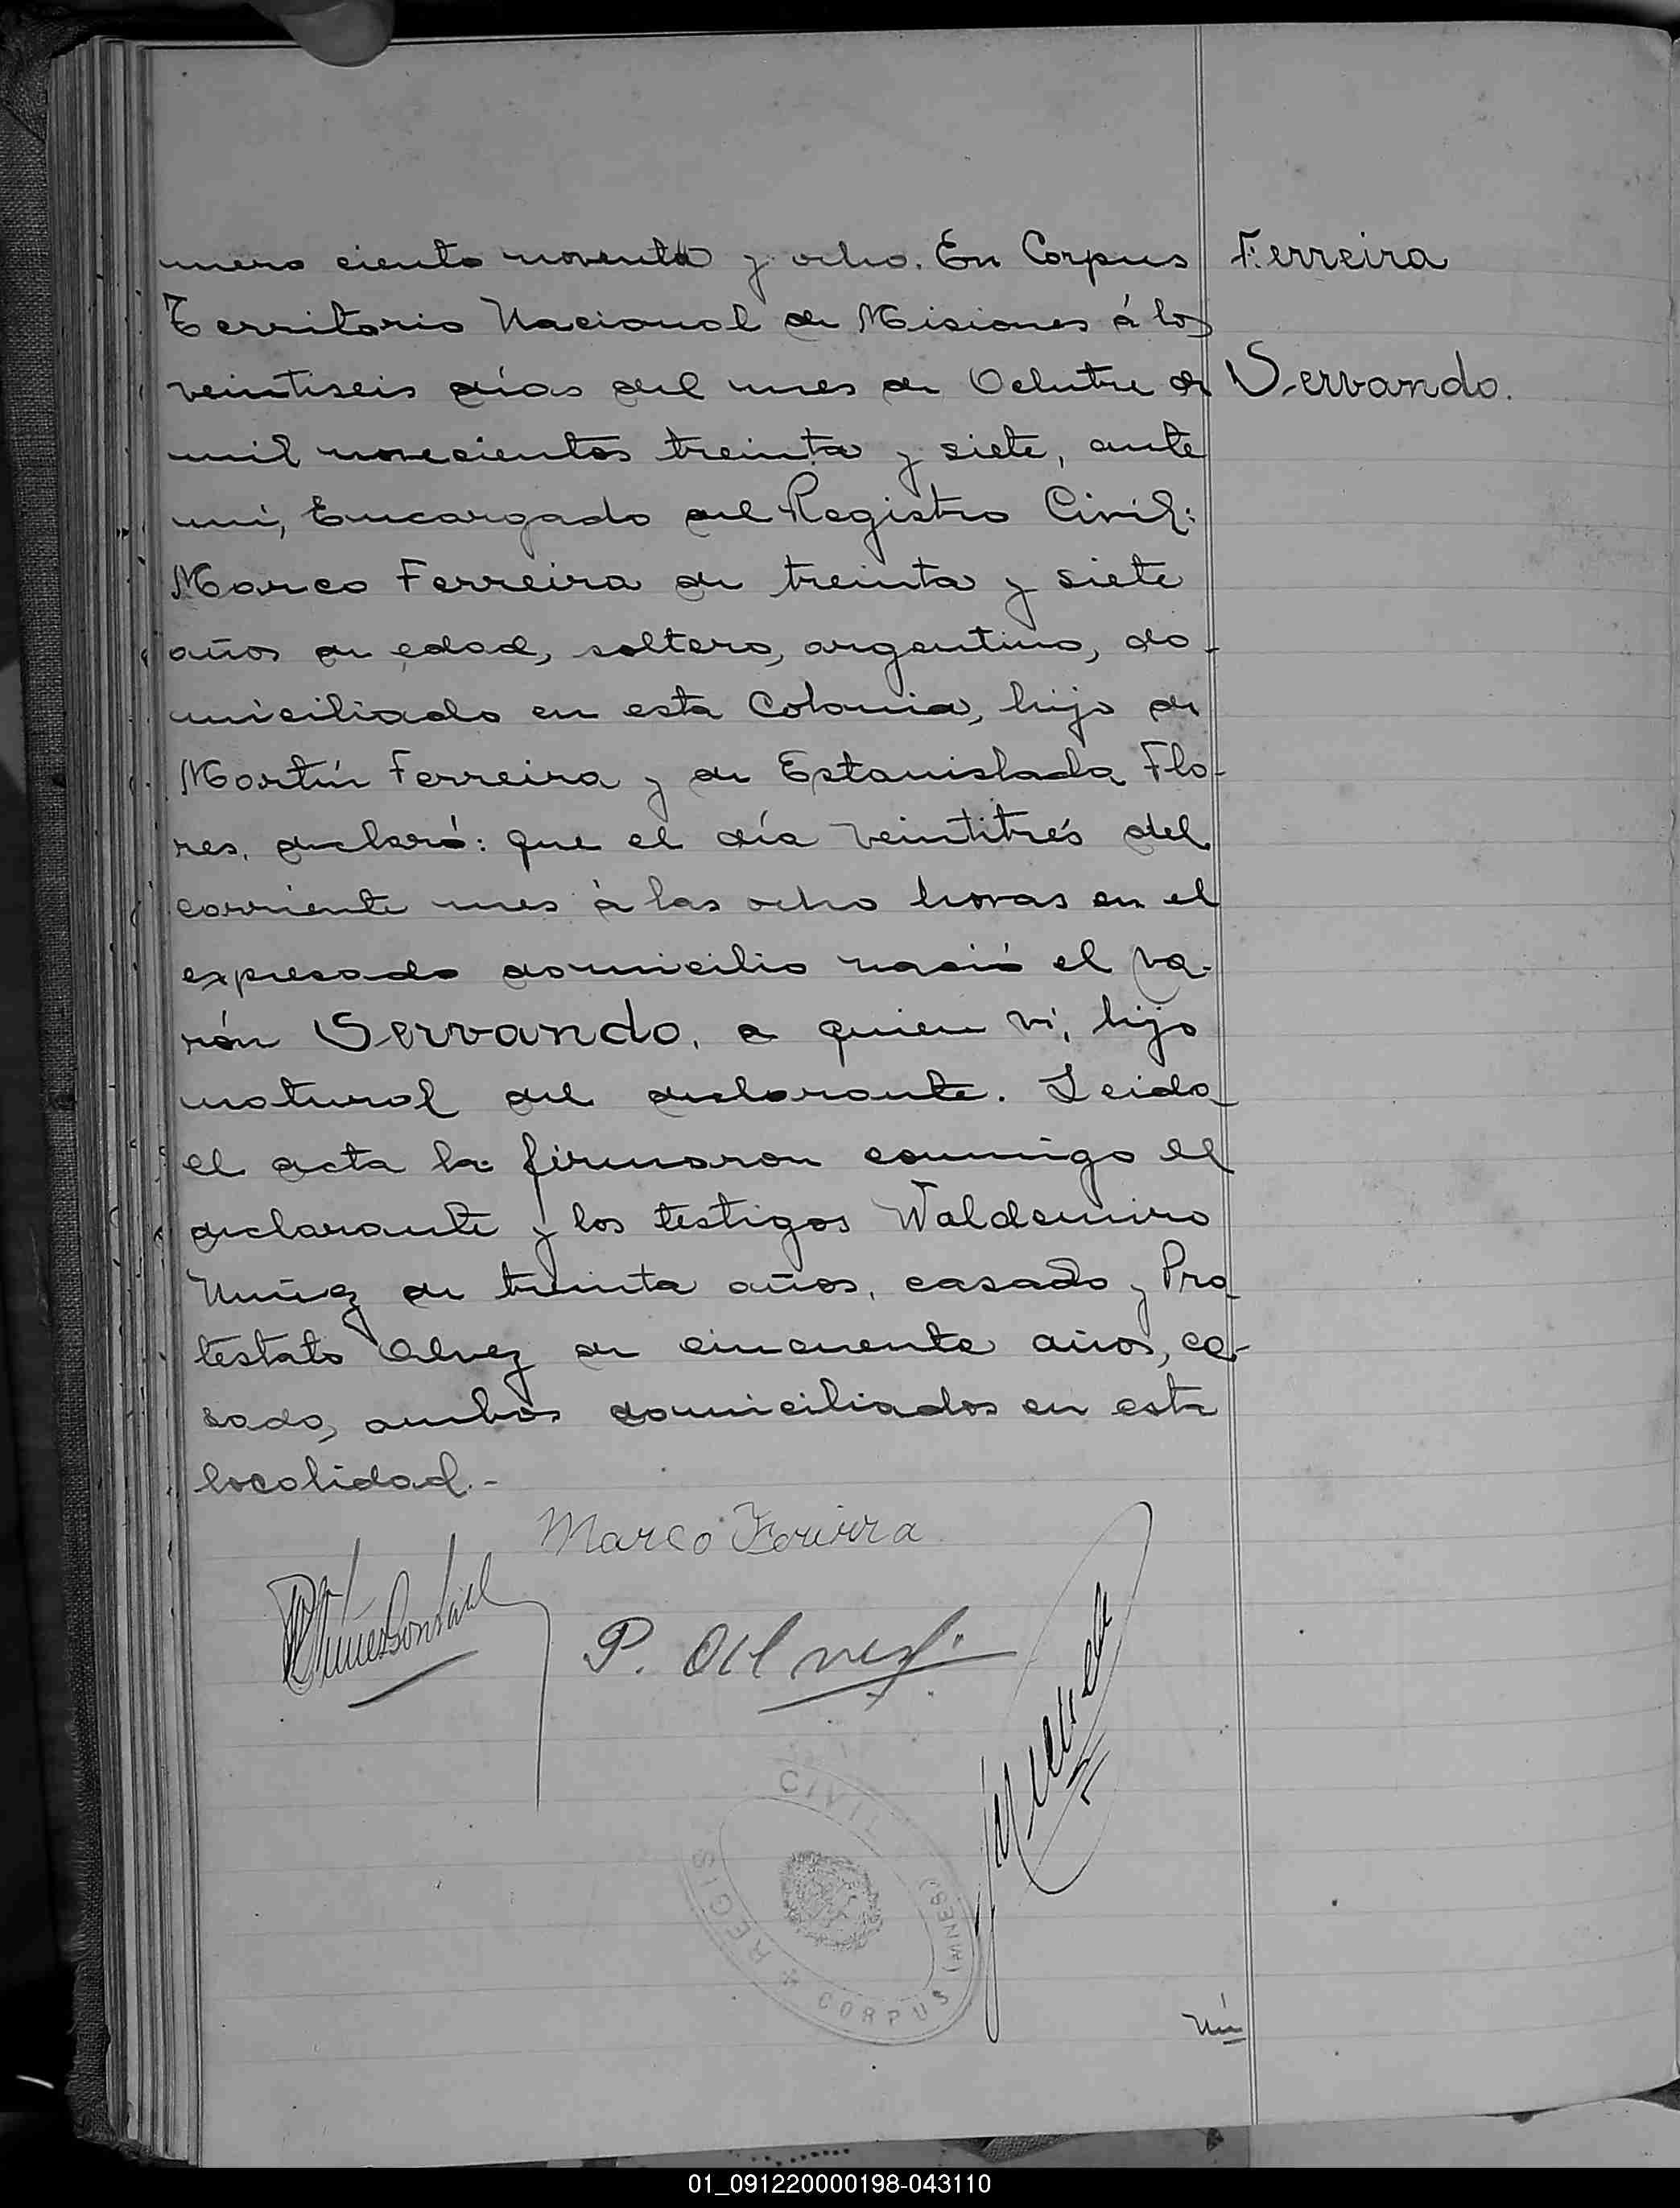 mero ciento noventa y ocho. En Corpus
Ferreira
Territorio Nacional de Misiones á los
veintiseis días del mes de Octubre de
Servando.
mil novecientos treinta y siete, ante
mi, Encargado del Registro Civil:
Marco Ferreira de treinta y siete
años de edad, soltero, argentino, do-
miciliado en esta Colonia, hijo de
Martín Ferreira y de Estanislada Flo-
res, declaró: que el día veintitrés del
corriente mes á las ocho horas en el
expresado domicilio nació el va-
rón Servando, a quien vi, hijo
natural del declarante. Leida
el acta la firmaron conmigo el
declarante y los testigos Waldemiro
Nuñez de treinta años, casado y Pro-
testato Alvez de cincuenta años, ca-
sado, ambos domiciliados en esta
localidad.-
Marco Ferirra
P. Alvez
REGIS CIVIL
CORPUS (MNES)
Nú
01_091220000198-043110